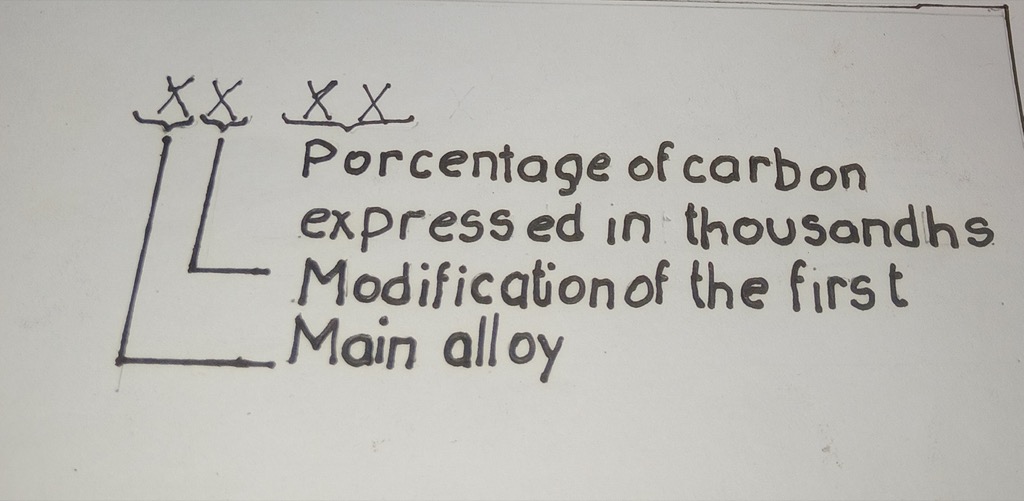 XX XX
Porcentage of carbon
expressed in thousandhs
Modification of the first
Main alloy